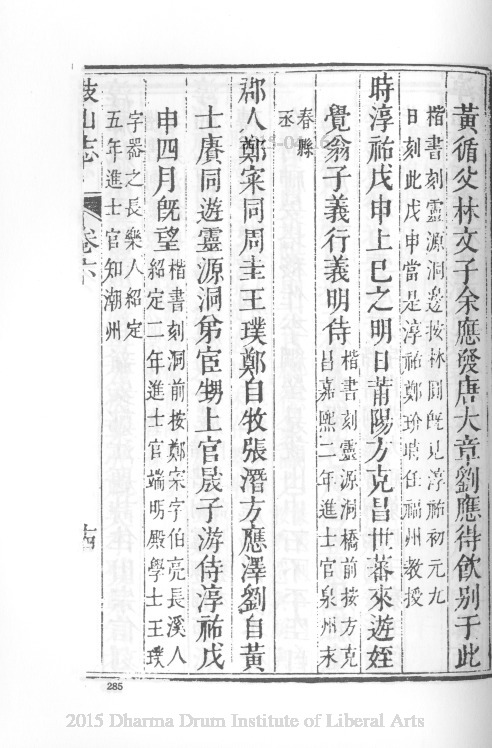 黃循父林文子余應發唐大章劉應待飲别于此
楷書刻靈源洞邊按林圓旣見淳祐初元九
日刻此戊申當是淳祐鄭玠時任福州教授
時淳祐戊申上巳之明日莆陽方克昌世蕃來遊姪
覺翁子義行義明侍
楷書刻靈源洞橋前按方克
昌嘉熙二年進士官泉州永
春縣
丞
郡人鄭寀同周圭王璞鄭自牧張潛方應澤劉自黃
士賡同遊靈源洞弟宦甥上官晟子游侍淳祐戊
申四月旣望
楷書刻洞前按鄭寀字伯亮長溪人
紹定二年進士官端明殿學士王璞
字器之長樂人紹定
五年進士官知潮州
鼓山志
卷六
十四
285
2015 Dharma Drum Institute of Liberal Arts